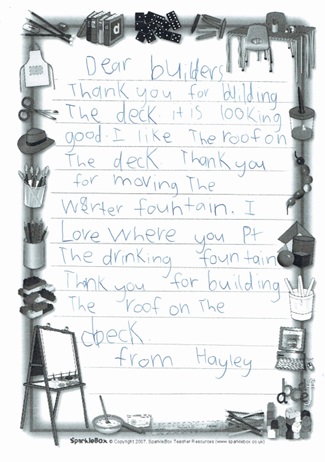 Dear builders
Thank you for bilding
The deck it is looking
good. I like The roof on
The deck Thank you
for moving The
Warter fountain. I
Love where you Pt
The drinking fountain
Thnk you for building
The roof on The
deck.
from Hayley
SparkleBox © Copyright 2007, SparkleBox Teacher Resources (www.sparklebox.co.uk)